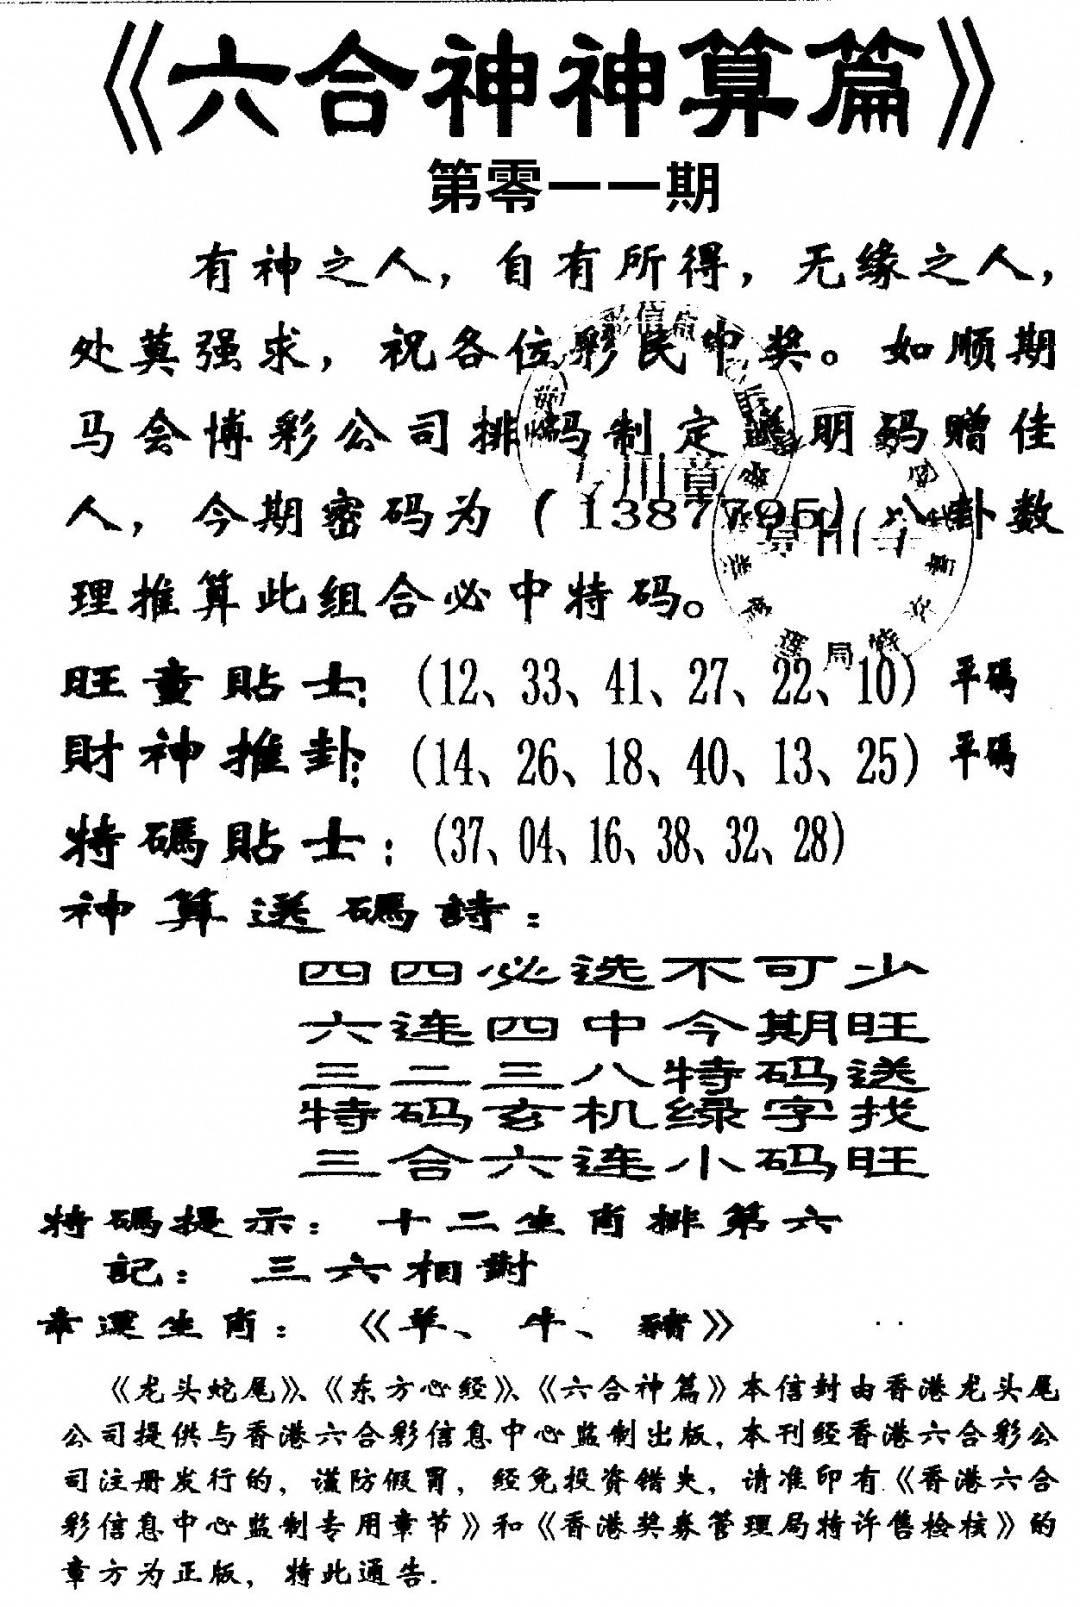 《六合神神算篇》
第零一一期
有神之人，自有所得，无缘之人，
处莫强求，祝各位彩民中奖。如顺期
马会博彩公司排码制定送明码赠佳
人，今期密码为（1387795）八卦数
理推算此组合必中特码。
旺童貼士：（12、33、41、27、22、10）平碼
財神推卦：（14、26、18、40、13、25）平碼
特碼貼士：（37、04、16、38、32、28）
神算送碼詩：
四四必选不可少
六连四中今期旺
三二三八特码送
特码玄机绿字找
三合六连小码旺
特碼提示：十二生肖排第六
記：三六相對
幸運生肖：《羊、牛、豬》
《龙头蛇尾》、《东方心经》、《六合神篇》本信封由香港龙头尾
公司提供与香港六合彩信息中心监制出版，本刊经香港六合彩公
司注册发行的，谨防假冒，经免投资错失，请准印有《香港六合
彩信息中心监制专用章节》和《香港奖券管理局特许售检核》的
章方为正版，特此通告.